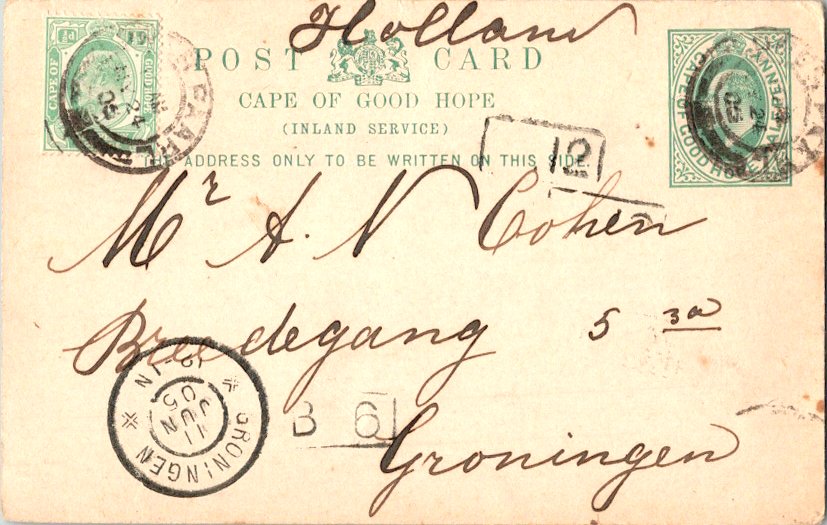 Holland
POST CARD
CAPE OF GOOD HOPE
(INLAND SERVICE)
THE ADDRESS ONLY TO BE WRITTEN ON THIS SIDE.
½d
CAPE OF GOOD HOPE
24
05
HALFPENNY
CAPE OF GOOD HOPE
24
05
12
Mr A. N Cohen
Breedegang 5 3a
Groningen
GRONINGEN
11
JUN
05
B 6